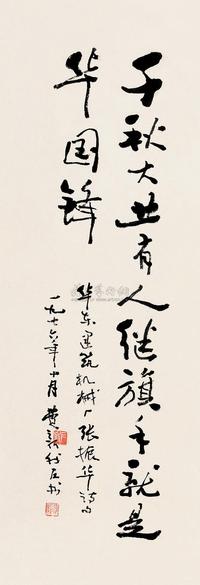 千秋大业有人继旗手就是
华国锋
华东建筑机械厂张振华诗句
一九七六年十月费新我左书